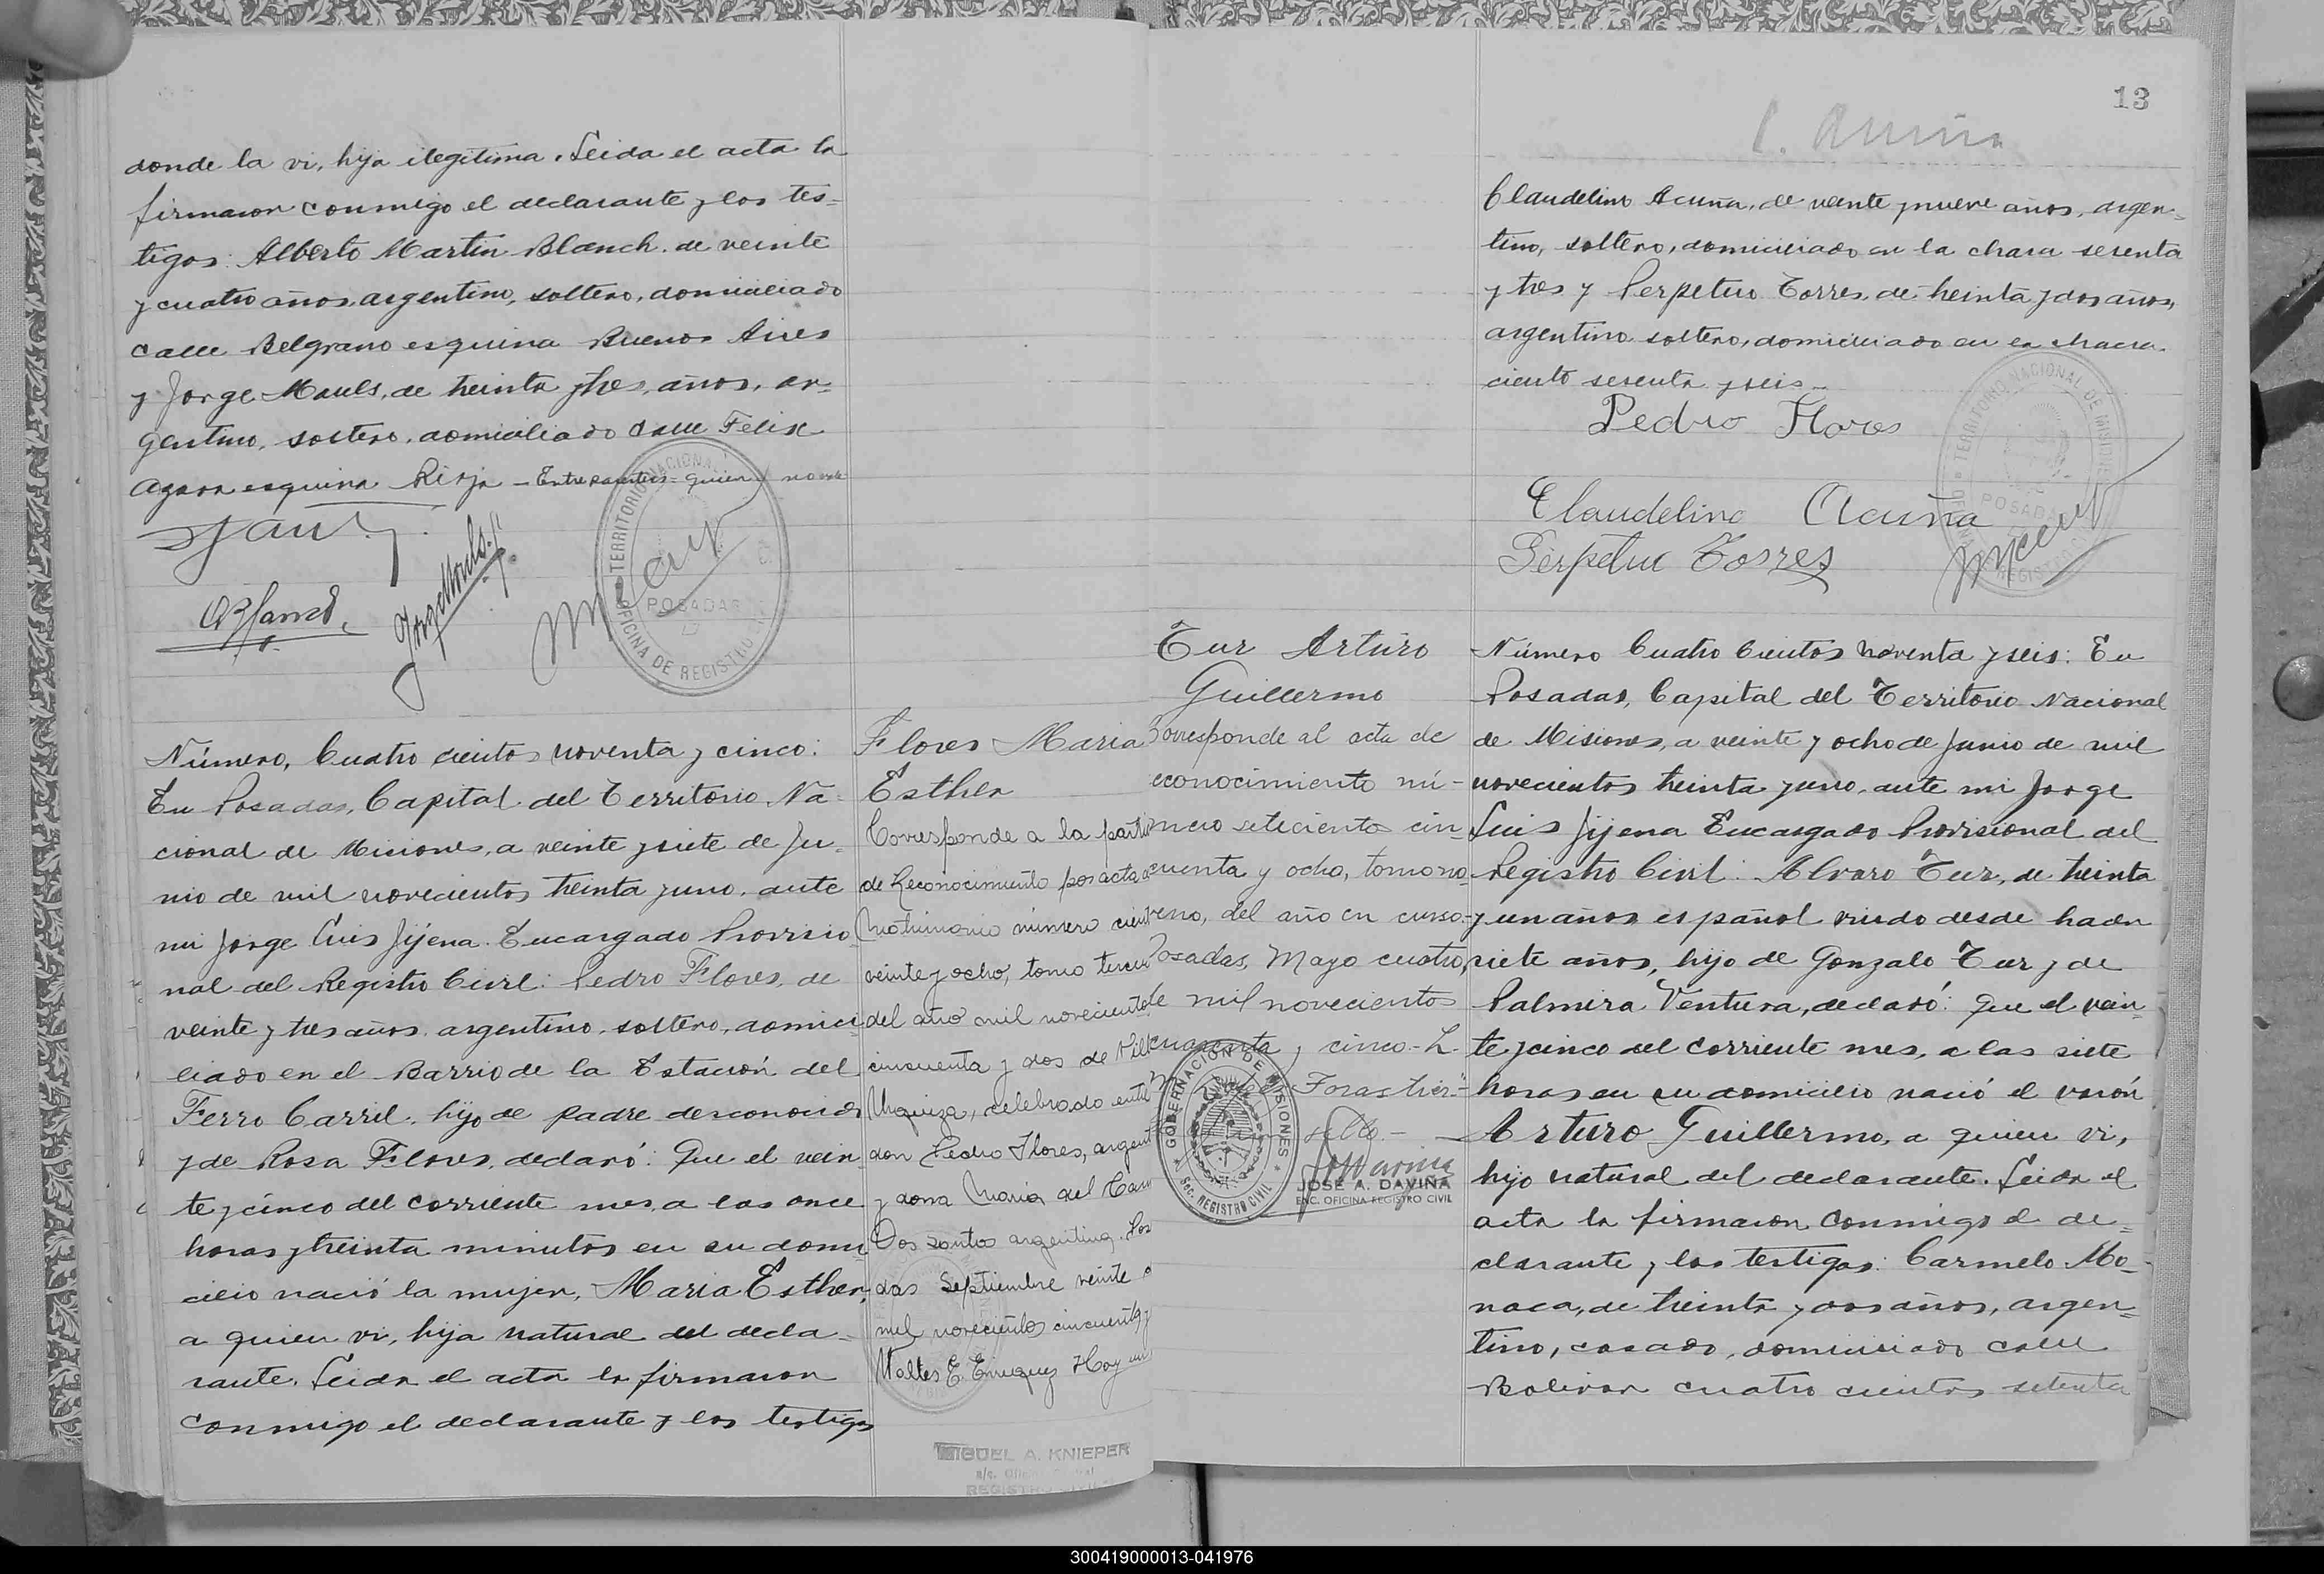 donde la vi, hija ilegitima. Leida el acta la
firmaron conmigo el declarante y los tes=
tigos: Alberto Martin Blanch, de veinte
y cuatro años, argentino, soltero, domiciliado
calle Belgrano esquina Buenos Aires
y Jorge Mouls, de treinta y tres, años, ar=
gentino, soltero, domiciliado calle Felix
Azara esquina Rioja - Entre parentesis = quien = no vale
TERRITORIO NACIONAL
POSADAS
OFICINA DE REGISTRO
Número, Cuatro cientos noventa y cinco:
En Posadas, Capital del Territorio Na=
cional de Misiones, a veinte y siete de Ju=
nio de mil novecientos treinta y uno, ante
mi Jorge Luis Jijena Encargado Provisio
nal del Registro Civil: Pedro Flores, de
veinte y tres años, argentino, soltero, domici
liado en el Barrio de la Estación del
Ferro Carril, hijo de padre desconocido
y de Rosa Flores, declaró: Que el vein
te y cinco del corriente mes, a las once
horas y treinta minutos en su domi
cilio nació la mujer, Maria Esther,
a quien vi, hija natural del decla=
rante. Leida el acta la firmaron
conmigo el declarante y los testigos
Flores Maria
Esther
Corresponde a la parti
de Reconocimiento por acta
Matrimonio número cient
veinte y ocho, tomo tercer
del año mil novecientos
cincuenta y dos de Vill
Urquiza, celebrado entre
don Pedro Flores, argent
y doña Maria del Car
Dos Santos argentina. Pos
das Septiembre veinte
mil novecientos cincuenta y
MIGUEL A. KNIEPER
REGISTRO CIVIL
13
C. Acuña
Claudelino Acuña, de veinte y nueve años, argen=
tino, soltero, domiciliado en la chacra sesenta
y tres y Perpetuo Torres, de treinta y dos años,
argentino soltero, domiciliado en la chacra
ciento sesenta y seis -
TERRITORIO NACIONAL DE MISIONES
POSADAS
Pedro Flores
Claudelino Acuña
Perpetuo Torres
Tur Arturo
Guillermo
Corresponde al acta de
econocimiento nú-
mero setecientos cin-
cuenta y ocho, tomo no-
veno, del año en curso-
Posadas, Mayo cuatro,
de mil novecientos
cuarenta y cinco.-
Forastier-
sello.-
GOBERNACION DE MISIONES
SEC. REGISTRO CIVIL
JOSE A. DAVIÑA
ENC. OFICINA REGISTRO CIVIL
Número Cuatro Cientos noventa y seis: En
Posadas, Capital del Territorio Nacional
de Misiones, a veinte y ocho de Junio de mil
novecientos treinta y uno, ante mi Jorge
Luis Jijena Encargado Provisional del
Registro Civil: Alvaro Tur, de treinta
y un años español viudo desde hacen
siete años, hijo de Gonzalo Tur y de
Palmira Ventura, declaró: Que el vein=
te y cinco del corriente mes, a las siete
horas en su domicilio nació el varón
Arturo Guillermo, a quien vi,
hijo natural del declarante. Leida el
acta la firmaron conmigo el de=
clarante y los testigos: Carmelo Mo=
naca, de treinta y dos años, argen=
tino, casado, domiciliado calle
Bolivar cuatro cientos setenta
300419000013-041976